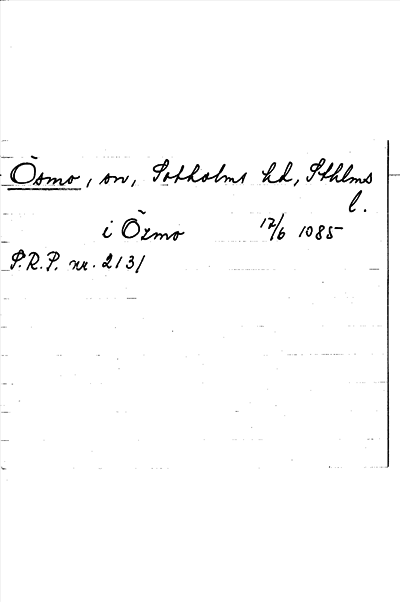 Ösmo, sn, Sotholms hd, Sthlms
l.
i Özmo 12/6 1085
S.R.P. nr. 2131